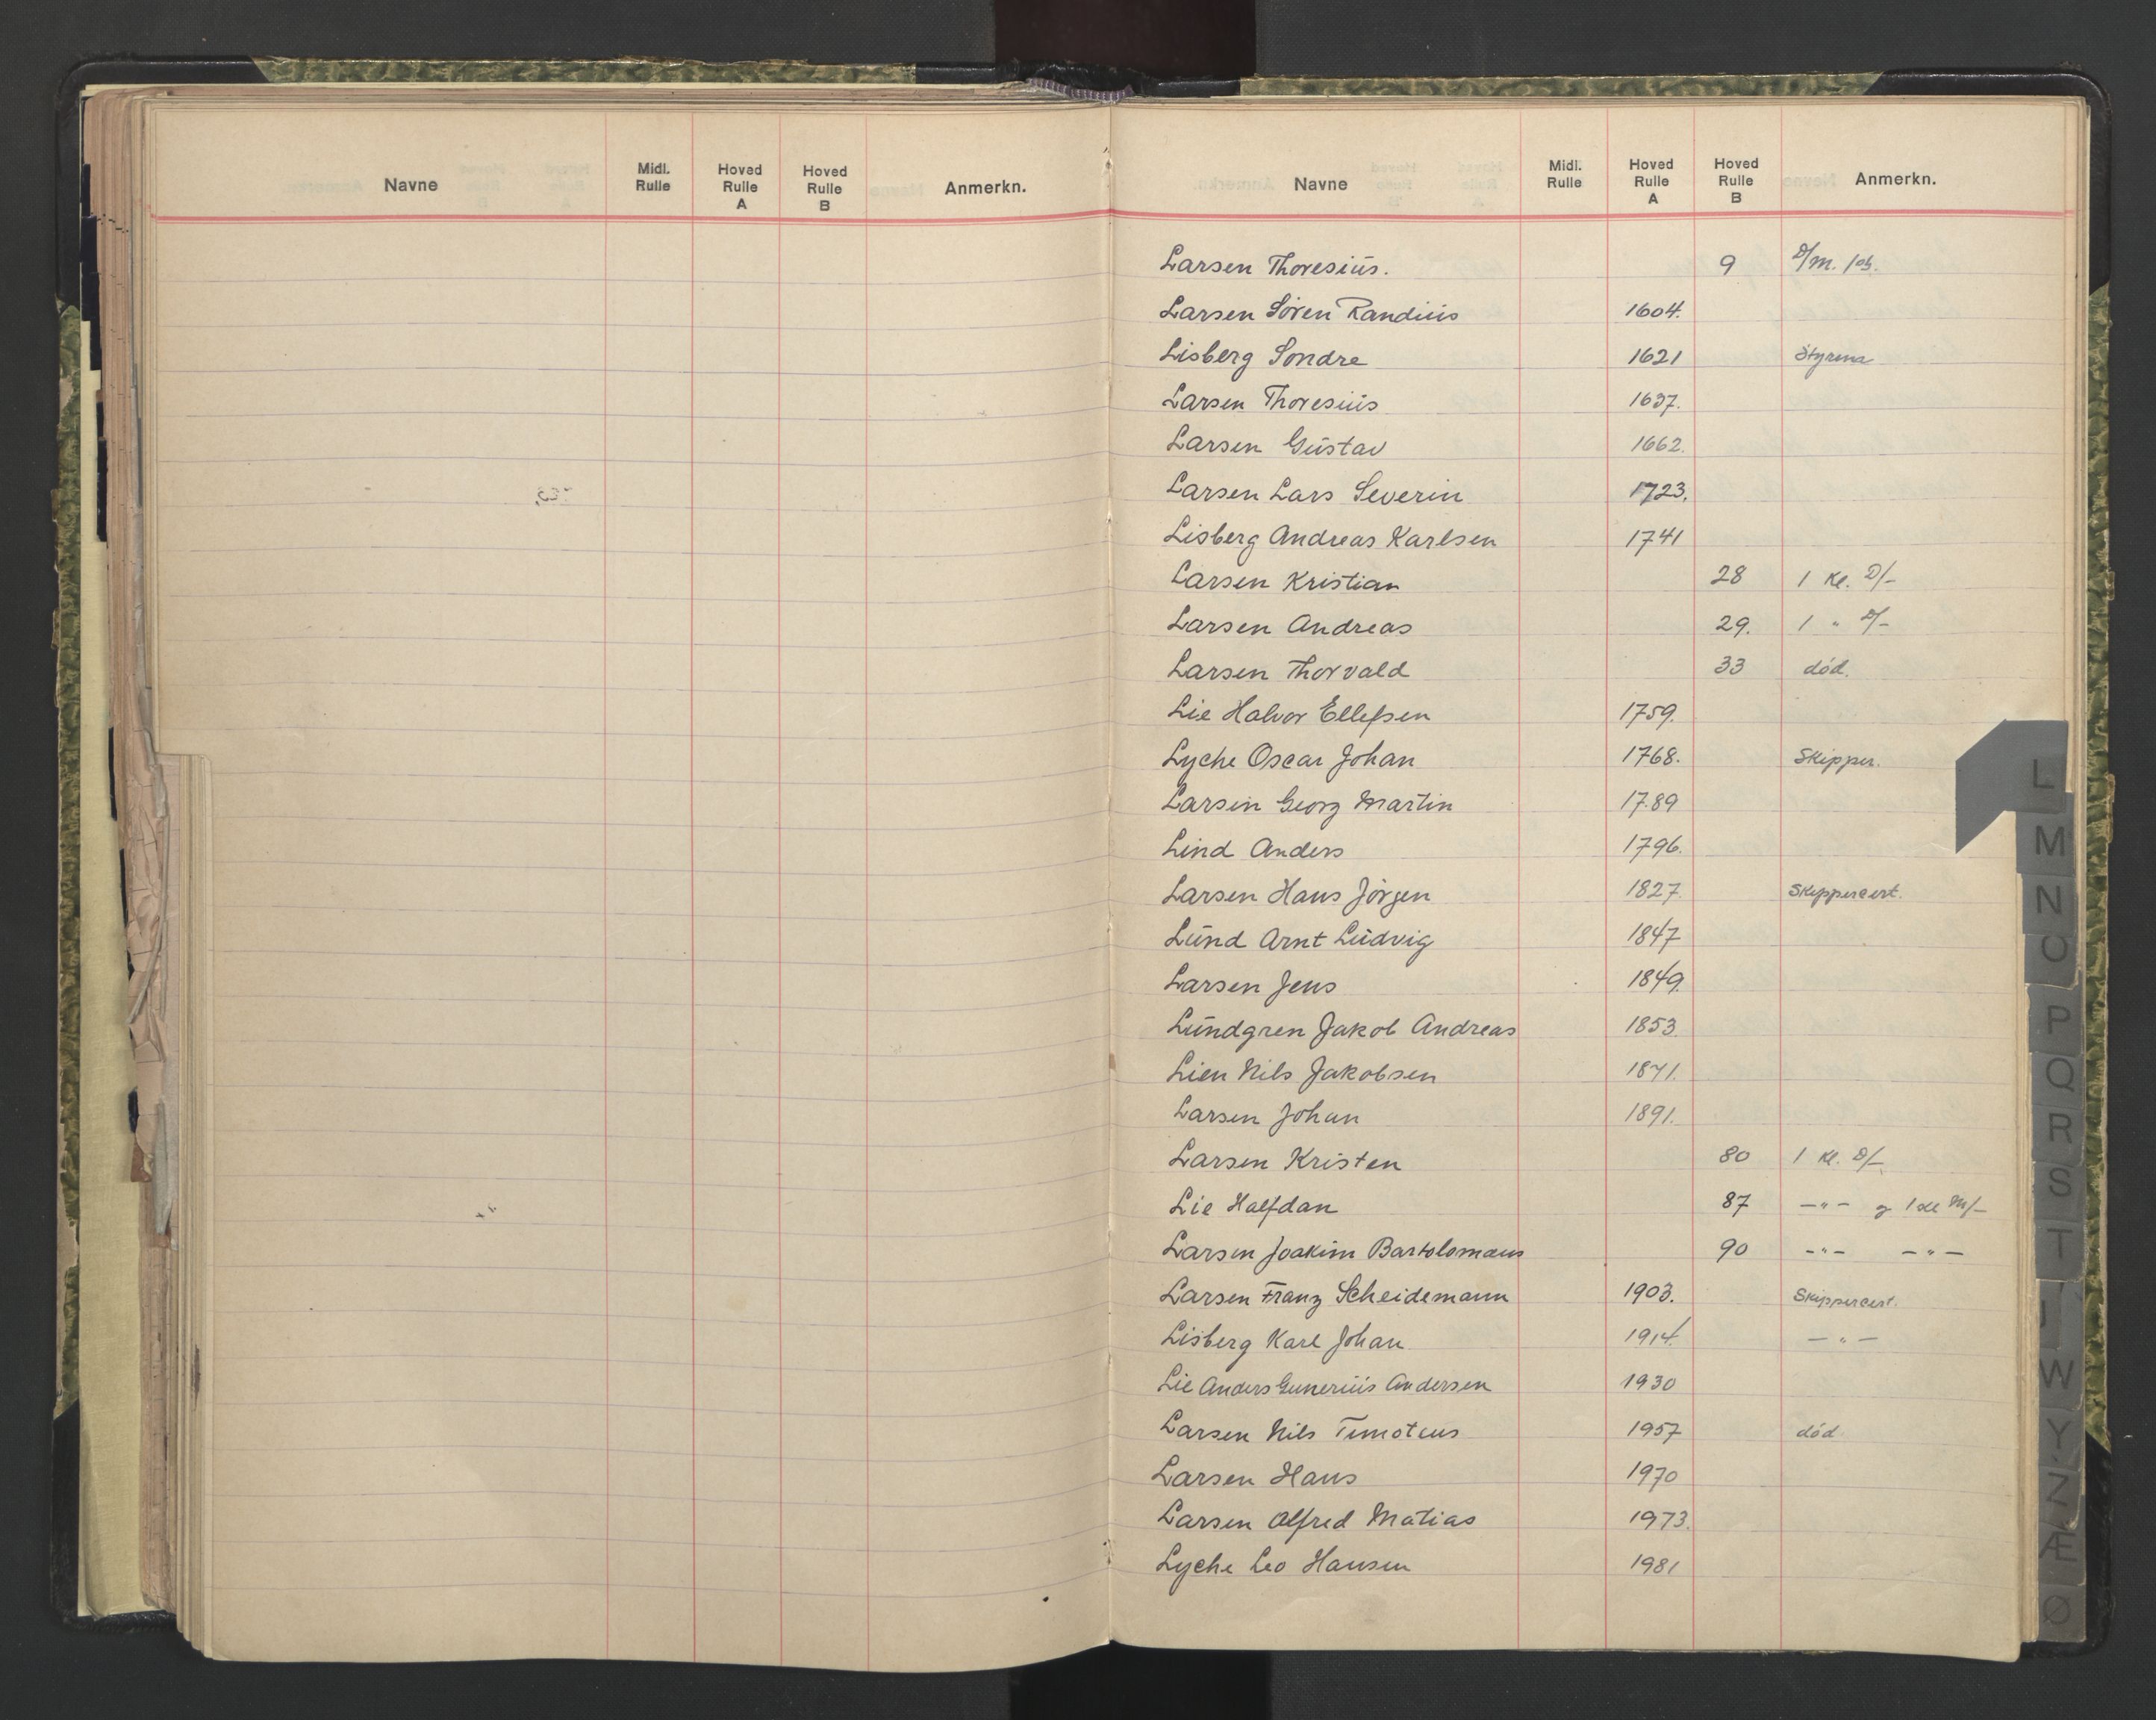 Navne Midl. Rulle Hoved Rulle A Hoved Rulle B Anmerkn.
Navne Midl. Rulle Hoved Rulle A Hoved Rulle B Anmerkn.
Larsen Thoresius. 9 D/M.
Larsen Sören Randius 1604.
Lisberg Sondre 1621 Styrma
Larsen Thoresius 1637.
Larsen Gustav 1662.
Larsen Lars Severin 1723.
Lisberg Andreas Karlsen 1741
Larsen Kristian 28 1 Kl. D/-
Larsen Andreas 29. 1 " D/-
Larsen Thorvald 33 död.
Lie Halvor Ellefsen 1759.
Lyche Oscar Johan 1768. Skipper.
Larsen Georg Martin 1789
Lind Anders 1796.
Larsen Hans Jörgen 1827 Skippercert.
Lund Arnt Ludvig 1847
Larsen Jens 1849.
Lundgren Jakob Andreas 1853
Lien Nils Jakobsen 1871.
Larsen Johan 1891.
Larsen Kristen 80 1 Kl. D/-
Lie Halfdan 87 -"- og 1 kl M/-
Larsen Joakim Bartolomæus 90 -"- -"-
Larsen Franz Scheidemann 1903. Skippercert.
Lisberg Karl Johan 1914. -"-
Lie Anders Gunerius Andersen 1930
Larsen Nils Timoteus 1957 död
Larsen Hans 1970
Larsen Alfred Matias 1973.
Lyche Leo Hansen 1981
L
M
N
O
P
Q
R
S
T
W
Y
Z
Æ
Ø